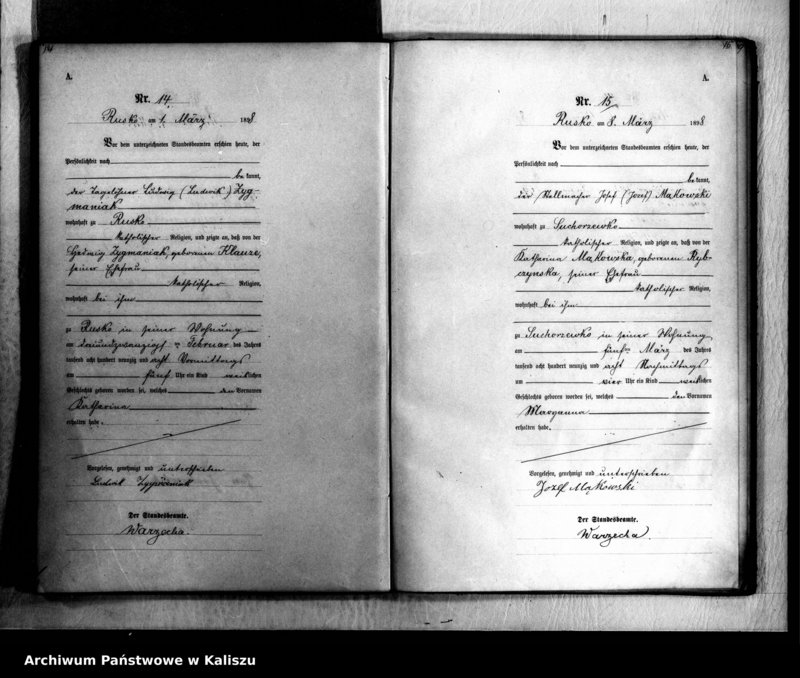 A.
Nr. 14.
Rusko am 1. März 1898
Vor dem unterzeichneten Standesbeamten erschien heute, der
Persönlichkeit nach
bekannt,
der Tagelöhner Ludwig (Ludwik) Zyg-
maniak
wohnhaft zu Rusko
katholischer Religion, und zeigte an, daß von der
Hedwig Zygmaniak, geborenen Klauze,
seiner Ehefrau
katholischer Religion,
wohnhaft bei ihm
zu Rusko in seiner Wohnung
am Februar des Jahres
tausend acht hundert neunzig und acht Vormittags
um fünf Uhr ein Kind weiblichen
Geschlechts geboren worden sei, welches den Vornamen
Katharina
erhalten habe.
Vorgelesen, genehmigt und unterschrieben
Ludwik
Der Standesbeamte.
Warzecha.
A.
Nr. 15
Rusko am 8. März 1898
Vor dem unterzeichneten Standesbeamten erschien heute, der
Persönlichkeit nach
bekannt,
der Stellmacher Josef (Jozef) Makowski
wohnhaft zu Suchorzewko
katholischer Religion, und zeigte an, daß von der
Katharina Makowska, geborenen Ryb-
czynska, seiner Ehefrau
katholischer Religion,
wohnhaft bei ihm
zu Suchorzewko in seiner Wohnung
am fünften März des Jahres
tausend acht hundert neunzig und acht Nachmittags
um vier Uhr ein Kind weiblichen
Geschlechts geboren worden sei, welches den Vornamen
Maryanna
erhalten habe.
Vorgelesen, genehmigt und unterschrieben
Jozef Mąkowski
Der Standesbeamte.
Warzecha.
Archiwum Państwowe w Kaliszu